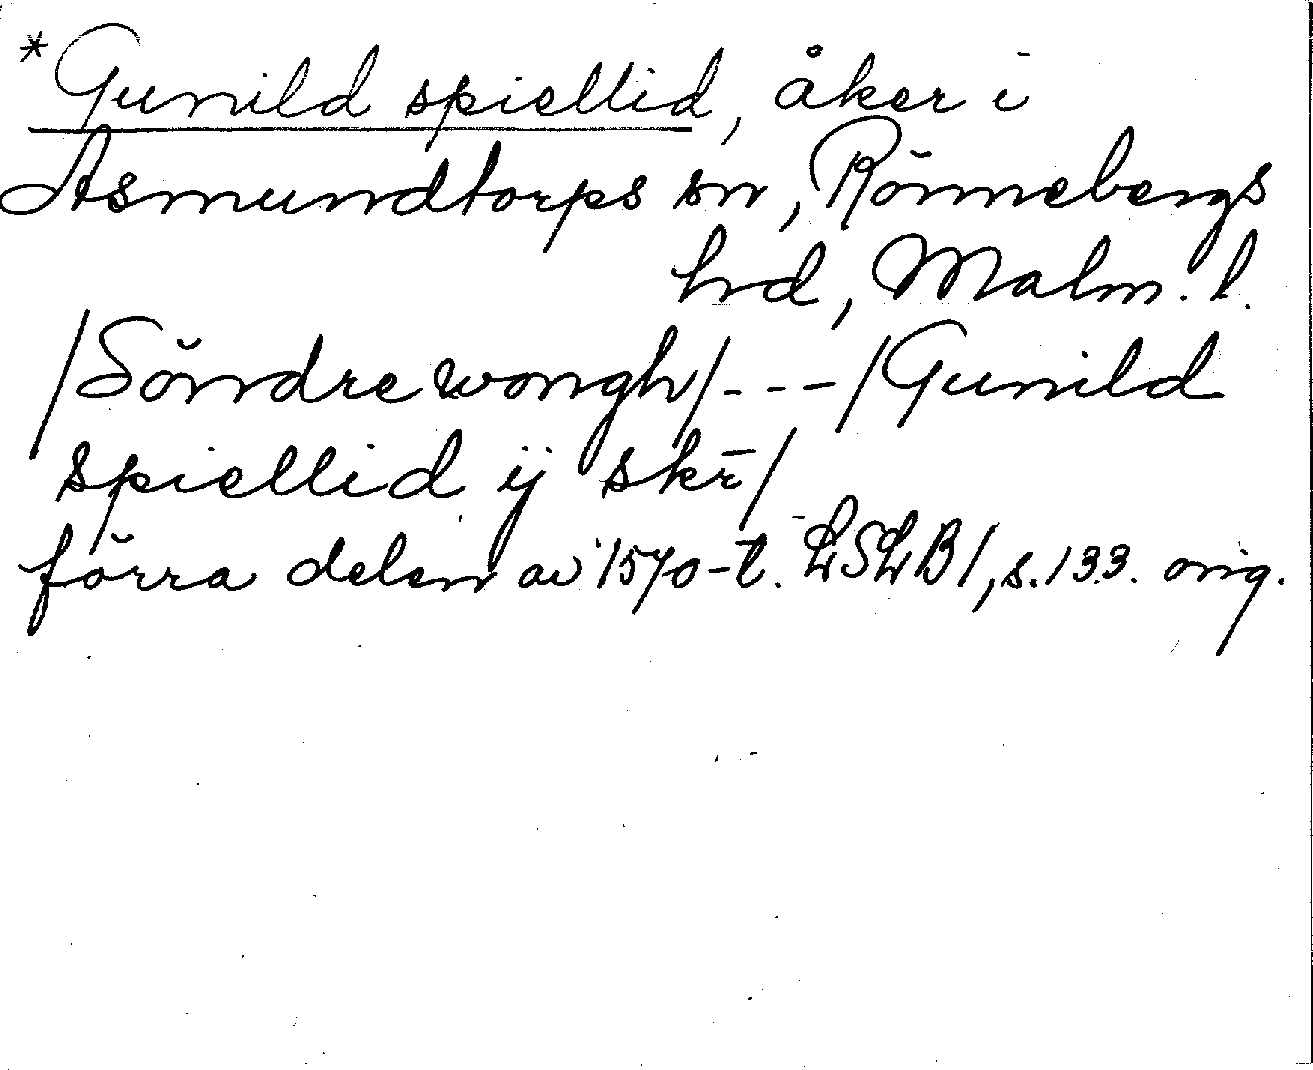 *Gunild spiellid, åker i
Asmundtorps sn, Rönnebergs
hd, Malm. l.
/Söndre wongh/---/Gunild
spiellid ij skr̄/
förra delen av 1570-t. LSLB1, s. 133. orig.